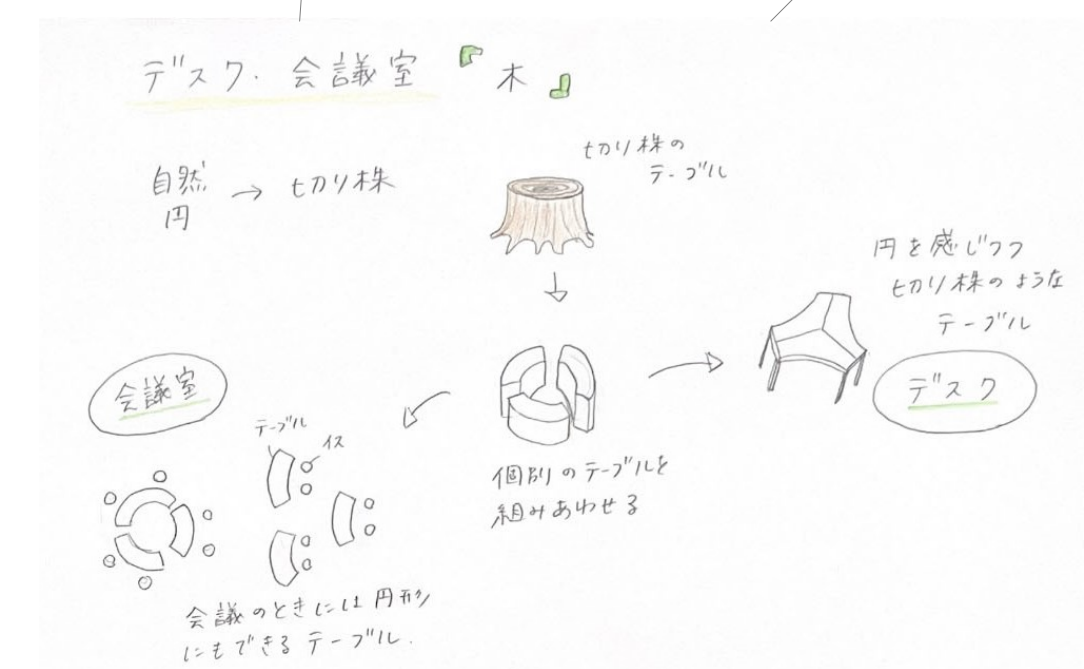 デスク・会議室『木』
自然
円
→ 切り株
切り株の
テーブル
円を感じつつ
切り株のような
テーブル
デスク
会議室
テーブル
イス
個別のテーブルを
組みあわせる
会議のときには円形
にもできるテーブル.